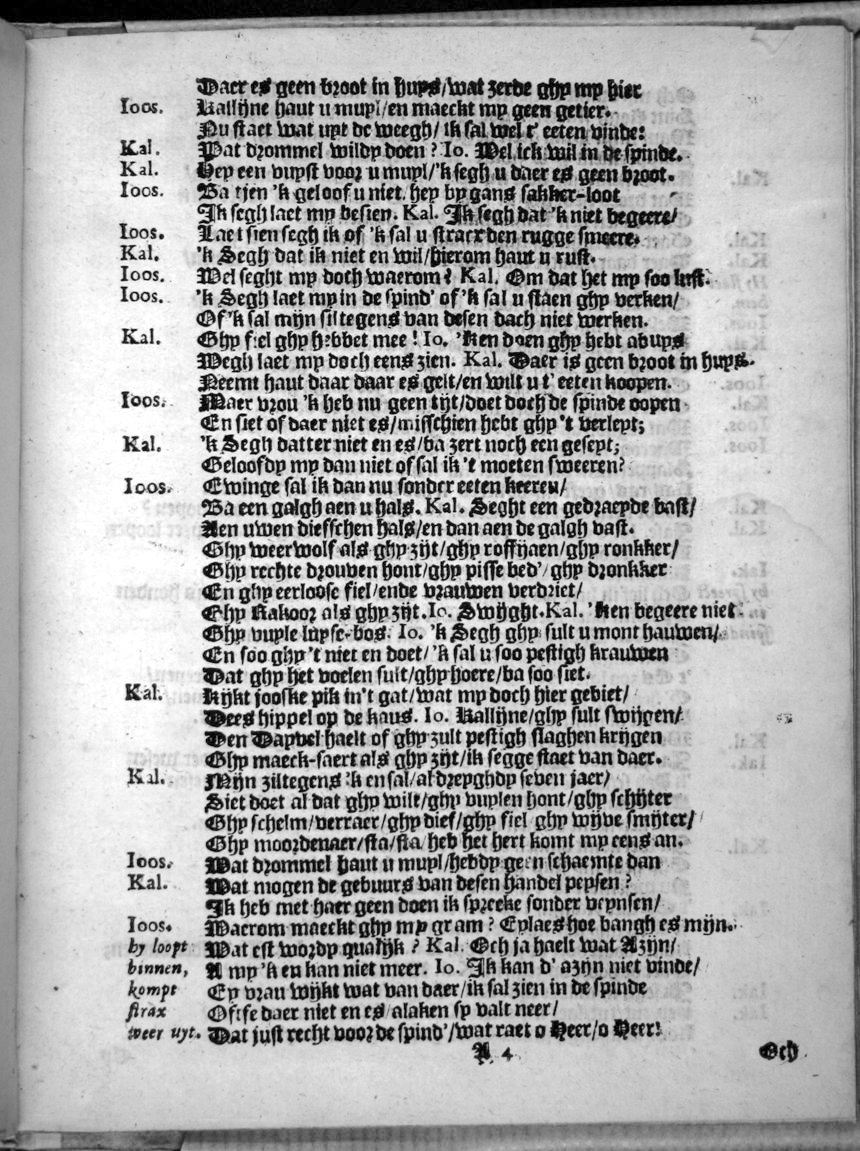 Daer es geen broot in huys/wat zerde ghy my hier
Ioos. Kallijne haut u muyl/en maeckt my geen getier.
Nu staet wat uyt de weegh/ ik sal wel t' eeten vinde:
Kal. Wat drommel wildy doen? Io. Wel ick wil in de spinde.
Kal. Hey een vuyst voor u muyl/'k segh u daer es geen broot.
Ioos. Ba tjen 'k geloof u niet. hey by gans sakker-loot
Ik segh laet my besien. Kal. Ik segh dat 'k niet begeere/
Ioos. Laet sien segh ik of 'k sal u stracx den rugge smeere.
Kal. 'k Segh dat ik niet en wil/hierom haut u rust.
Ioos. Wel seght my doch waerom? Kal. Om dat het my soo lust.
Ioos. 'k Segh laet my in de spind' of 'k sal u slaen ghy verken/
Of 'k sal mijn siltegens van desen dach niet werken.
Kal. Ghy fiel ghy hebbet mee! Io. 'Ken doen ghy hebt abuys
Wegh laet my doch eens zien. Kal. Daer is geen broot in huys.
Neemt haut daar daar es gelt/en wilt u t' eeten koopen.
Ioos. Maer vrou 'k heb nu geen tijt/doet doch de spinde oopen
En siet of daer niet es/misschien hebt ghy 't verleyt;
Kal. 'k Segh datter niet en es/ba zert noch een geseyt;
Geloofdy my dan niet of sal ik 't moeten sweeren?
Ioos. Ewinge sal ik dan nu sonder eeten keeren/
Ba een galgh aen u hals. Kal. Seght een gedraeyde bast/
Aen uwen diefschen hals/en dan aen de galgh vast.
Ghy weerwolf als ghy zijt/ghy roffijaen/ghy ronkker/
Ghy rechte drouven hont/ghy pisse bed'/ghy dronkker
En ghy eerloose fiel/ende vrauwen verdriet/
Ghy Rakoor als ghy zijt. Io. Swijght. Kal. 'Ken begeere niet
Ghy vuyle luyse-bos. Io. 'k Segh ghy sult u mont hauwen/
En soo ghy 't niet en doet/'k sal u soo pestigh krauwen
Dat ghy het voelen sult/ghy hoere/ba soo siet.
Kal. Kijkt jooske pik in't gat/wat my doch hier gebiet/
Dees hippel op de kaus. Io. Kallijne/ghy sult swijgen/
Den Dayvel haelt of ghy zult pestigh slaghen krijgen
Ghy maeck-saert als ghy zijt/ik segge staet van daer.
Kal. Mijn ziltegens 'k en sal/al dreyghdy seven jaer/
Siet doet al dat ghy wilt/ghy vuylen hont/ghy schijter
Ghy schelm/verraer/ghy dief/ghy fiel ghy wijve smijter/
Ghy moordenaer/sta/sta/heb het hert komt my eens an.
Ioos. Wat drommel haut u muyl/hebdy geen schaemte dan
Kal. Wat mogen de gebuurs van desen handel peysen?
Ik heb met haer geen doen ik spreeke sonder veynsen/
Ioos. Waerom maeckt ghy my gram? Eylaes hoe bangh es mijn.
hy loopt Wat est wordy qualijk? Kal. Och ja haelt wat Azijn/
binnen, A my 'k en kan niet meer. Io. Ik kan d' azijn niet vinde/
kompt Ey vrau wijkt wat van daer/ik sal zien in de spinde
strax Oftse daer niet en es/alaken sy valt neer/
weer uyt. Dat just recht voor de spind'/wat raet o Heer/o Heer!
A 4 Och